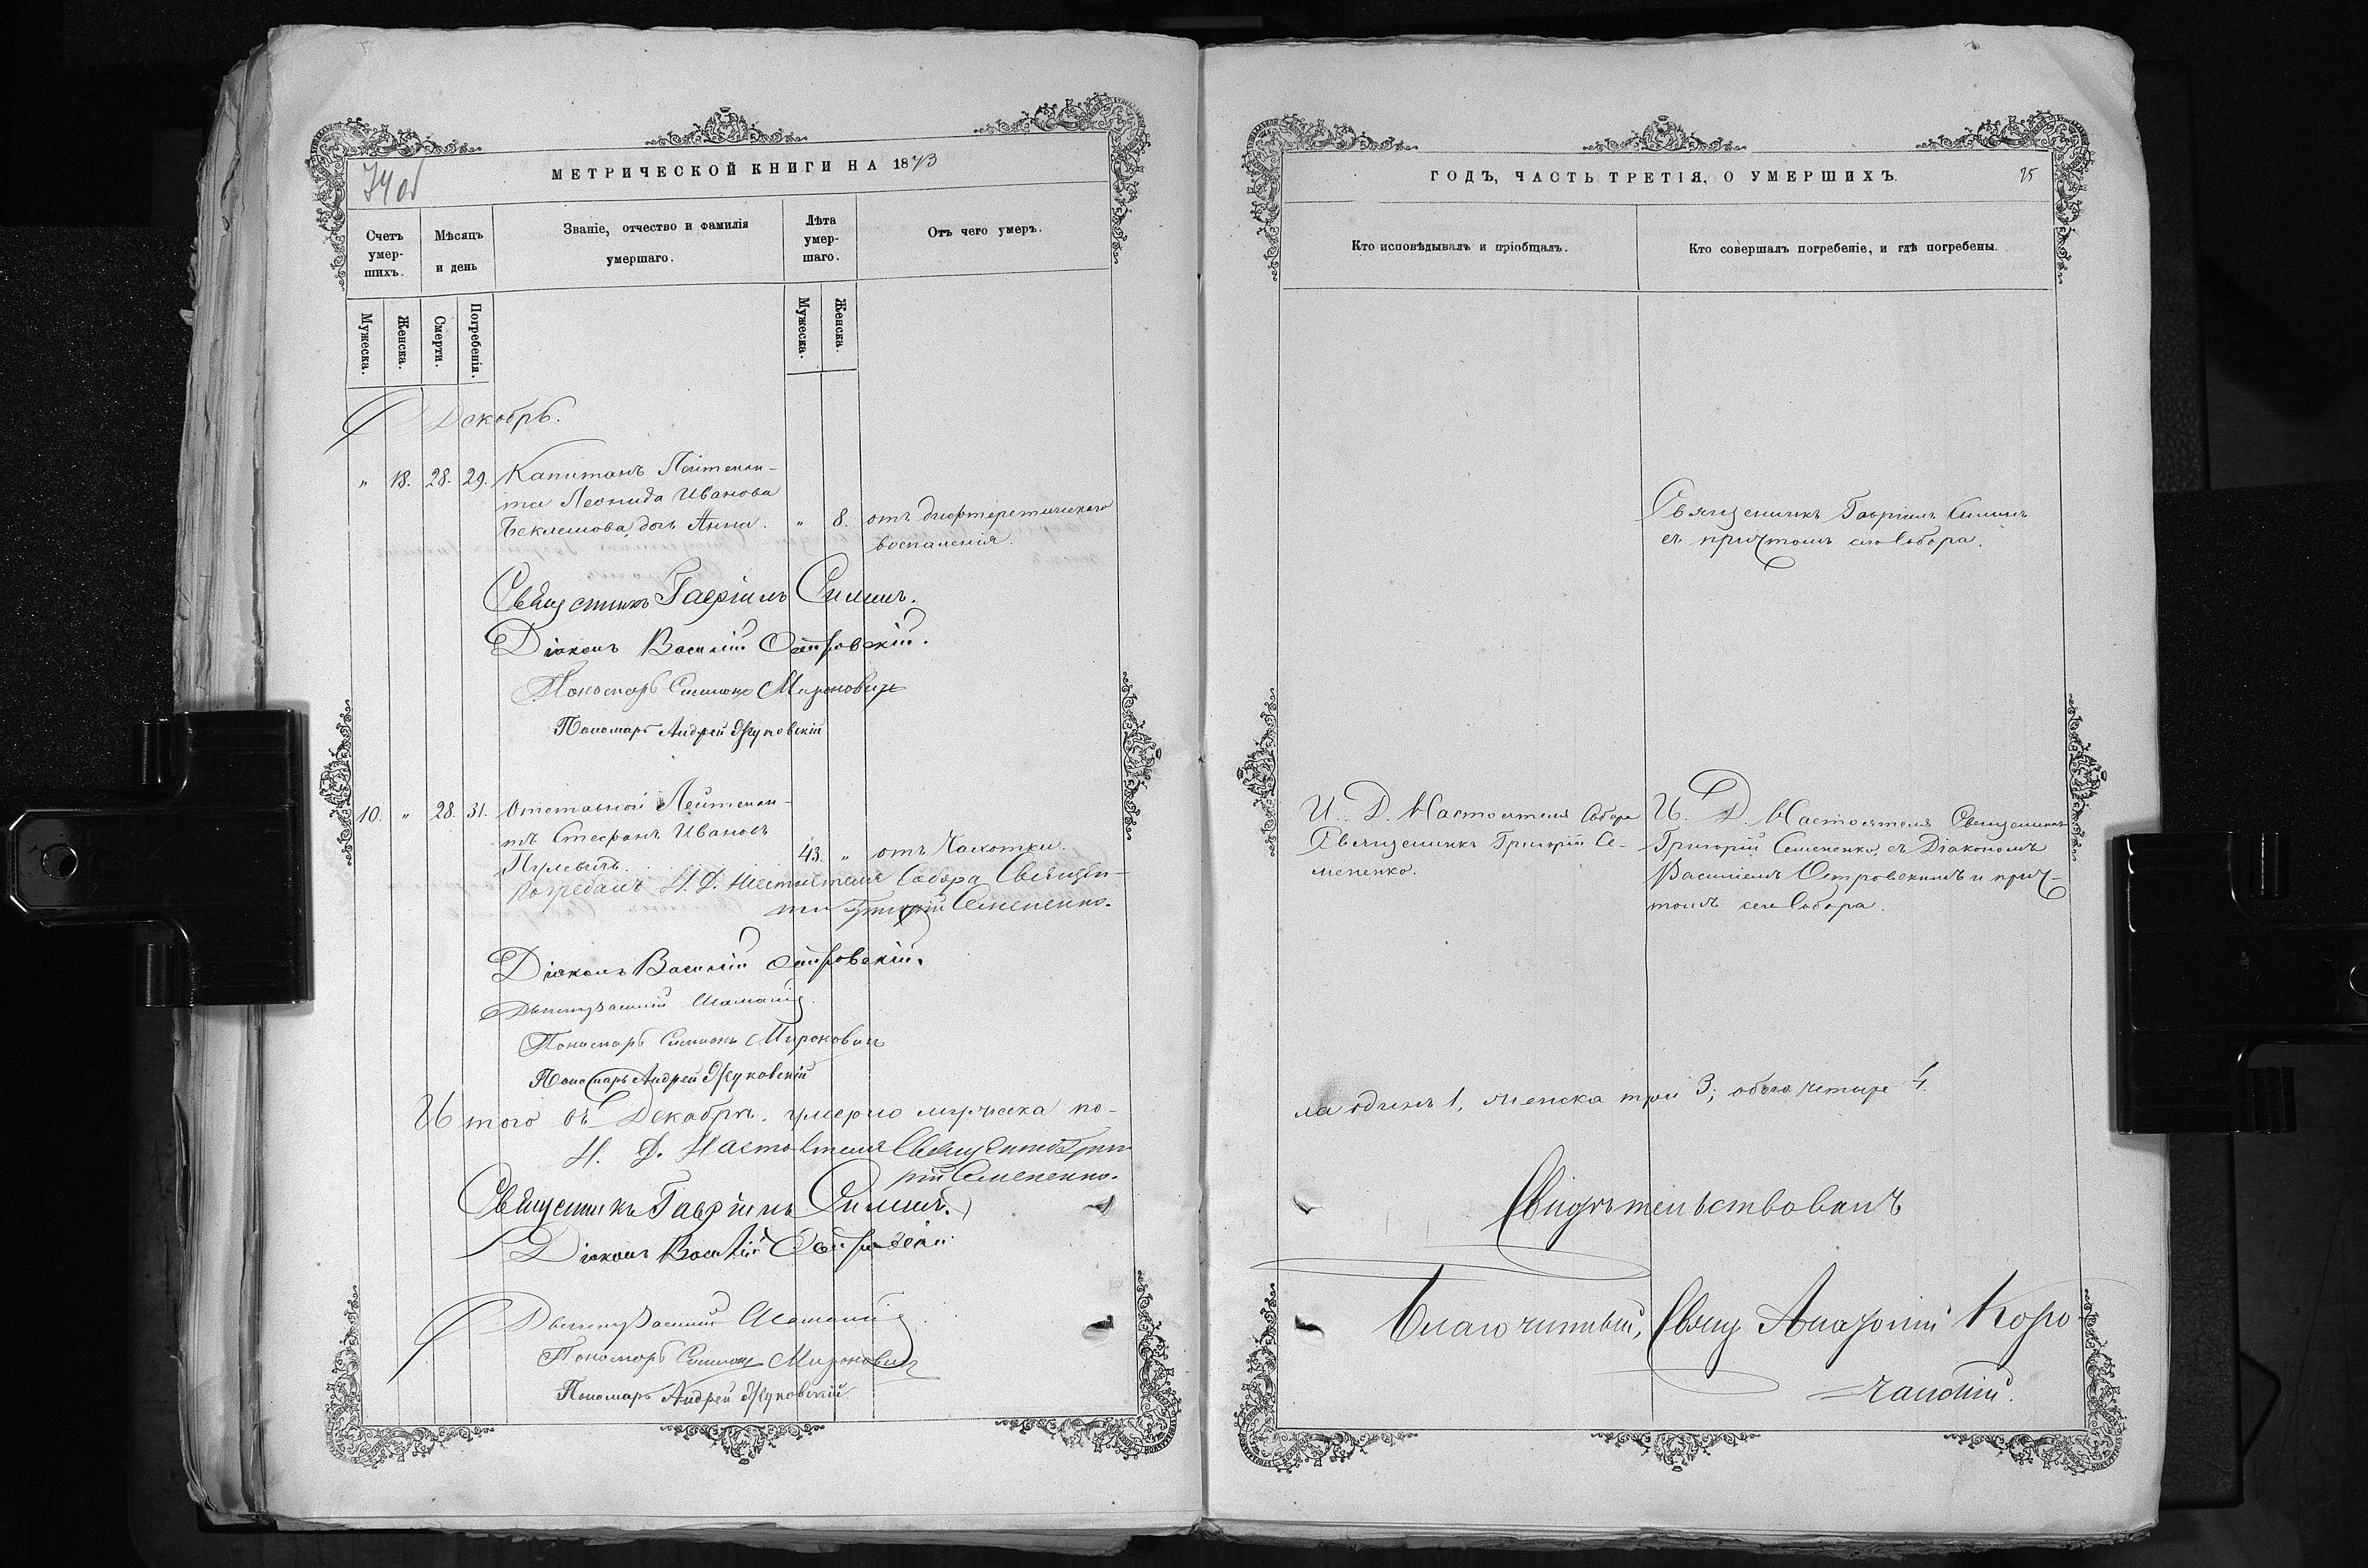 МЕТРИЧЕСКОЙ КНИГИ НА 1873
Счетъ умер-шихъ.
Мѣсяцъ и день
Званіе, отчество и фамилія умершаго.
Лѣта умер-шаго.
Отъ чего умеръ.
Мужеска.
Женска.
Смерти.
Погребенія.
Мужеска.
Женска.
Декабрь.
" 18. 28. 29. Капитанъ Лейтенан-
та Леонида Иванова
Беклешова, дочь Анна. " 8. отъ дифтеретическаго
воспаленія.
Священникъ Гавріилъ Силинъ.
Діаконъ Василій Островскій.
Пономарь Симеонъ Мироновичъ
Пономарь Андрей Жуковскій
10. " 28. 31. Отставной Лейтенан-
тъ Стефанъ Ивановъ
43. " отъ Чахотки.
Погребалъ И. Д. Настоятеля Собора Священ-
Григорій Семененко.
Діаконъ Василій Островскій.
Пономарь Симеонъ Мироновичъ
Пономарь Андрей Жуковскій
Итого въ Декабрѣ умерло мужеска по-
И. Д. Настоятеля Григо-
рій Семененко.
Священникъ Гавріилъ Силинъ.
Діаконъ Василій Островскій
Пономарь Симеонъ Мироновичъ
Пономарь Андрей Жуковскій
ГОДЪ, ЧАСТЬ ТРЕТІЯ, О УМЕРШИХЪ.
Кто исповѣдывалъ и пріобщалъ.
Кто совершалъ погребеніе, и гдѣ погребены.
Священникъ Гавріилъ Силинъ
съ причтомъ сего Собора.
И. Д. Настоятеля Собора
Священникъ Григорій Се-
мененко.
И. Д. Настоятеля Священникъ
Григорій Семененко, съ Діакономъ
Василіемъ Островскимъ и прич-
томъ сего Собора.
ла одинъ 1, женска три 3; обоего четыре 4.
Свидѣтельствовалъ
Благочинный, Свящ Коро-